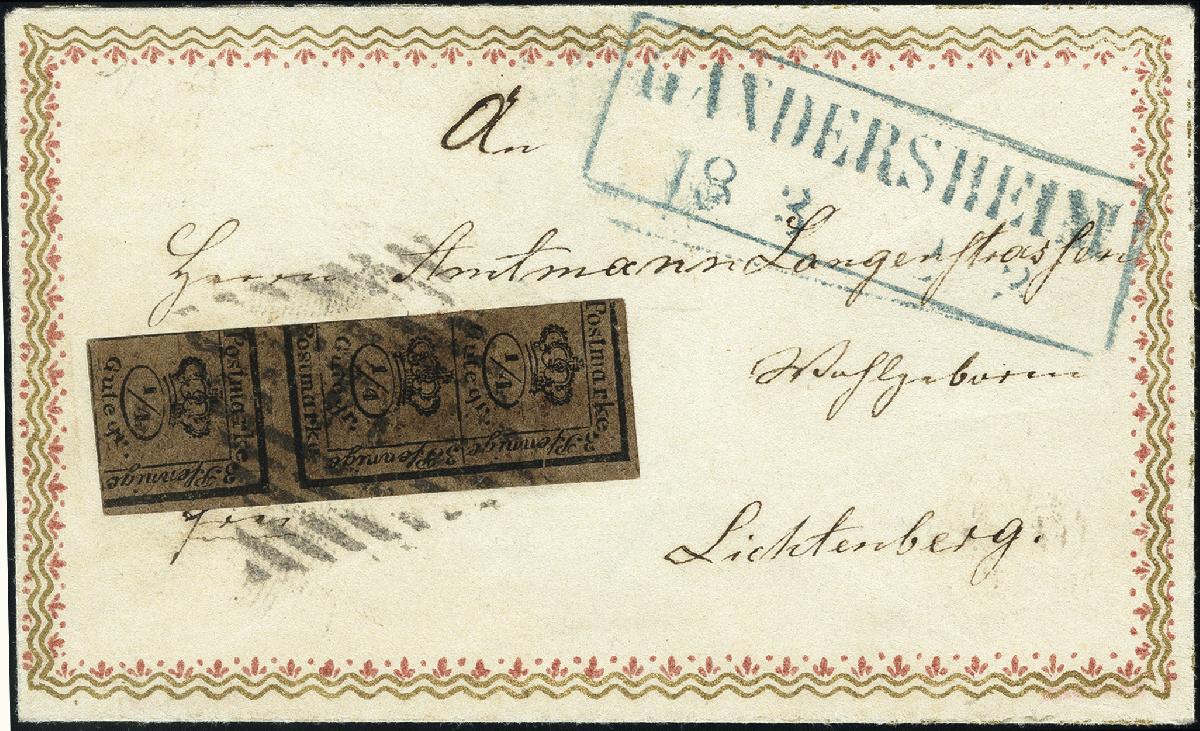 GANDERSHEIM
18 3
An
Herrn Amtmann Langenstrassen
Wohlgeborn
Lichtenberg.
Postmarke 1/4 Gutegr. 3 Pfennige
Postmarke 1/4 Gutegr. 3 Pfennige
1/4 Gutegr. 3 Pfennige Postmarke